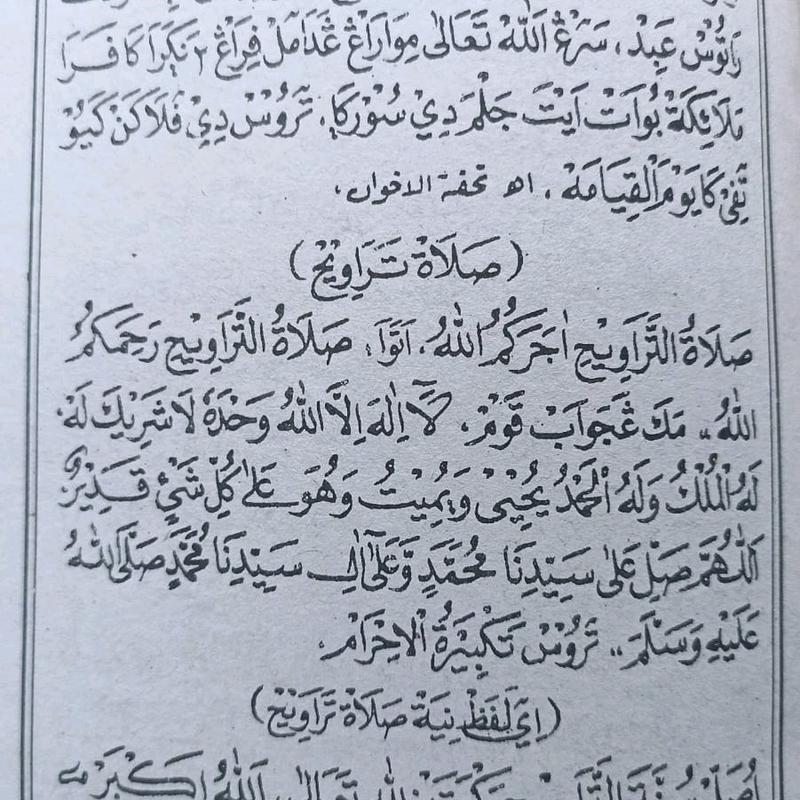 رَاتُوْسْ عَبِدْ، سَرْعْ اَللّٰهْ تَعَالٰى مِوَارَاڠْ ڠَدَامَلْ فِرَاڠْ٢ نَكَرَا كَا فَرَا
مَلَائِكَةْ بُوَاتْ اَيْتَ جَلْمَ دِيْ سُوْرْكَا، تَرُوْسْ دِيْ فَلَاكَنْ كَيُوْ
تَّفِيْ كَا يَوْمَ اَلْقِيَامَهْ. اه تحفة الاخوان،
(صَلَاةْ تَرَاوِيْحْ)
صَلَاةُ التَّرَاوِيْحِ اٰجَرَكُمُ اللّٰهُ، اَتَوَا؛ صَلَاةُ التَّرَاوِيْحِ رَحِمَكُمُ
اللّٰهُ،، مَكَ ڠَجَوَابْ قَوْمْ، لَآ اِلٰهَ اِلَّا اللّٰهُ وَحْدَهٗ لَا شَرِيْكَ لَهْ،
لَهُ الْمُلْكُ وَلَهُ الْحَمْدُ يُحْيِيْ وَيُمِيْتُ وَهُوَ عَلٰى كُلِّ شَيْئٍ قَدِيْرٌ
اَللّٰهُمَّ صَلِّ عَلٰى سَيِّدِنَا مُحَمَّدٍ وَّعَلٰٓى اٰلِ سَيِّدِنَا مُحَمَّدٍ صَلَّى اللّٰهُ
عَلَيْهِ وَسَلَّمَ،، تَرُوْسْ تَكْبِيْرَةُ الْاِحْرَامْ،
(اِيَ لَفَظْ نِيَةْ صَلَاةْ تَرَاوِيْحْ)
اُصَلِّيْ سُنَّةَ التَّرَاوِيْحِ رَكْعَتَيْنِ لِلّٰهِ تَعَالٰى،، اَللّٰهُ اَكْبَرْ